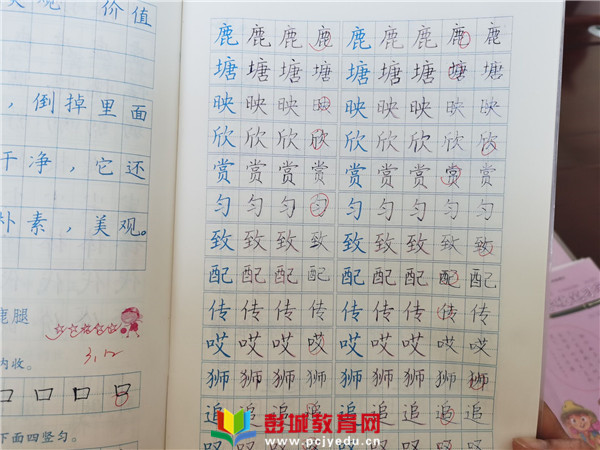 价值
，倒掉里面
干净，它还
朴素，美观。
鹿腿
3,12
内收。
下面四竖匀。
鹿鹿鹿鹿鹿鹿鹿鹿鹿
塘塘塘塘塘塘塘塘塘
映映映映映映映映映
欣欣欣欣欣欣欣欣欣
赏赏赏赏赏赏赏赏赏
匀匀匀匀匀匀匀匀匀
致致致致致致致致致
配配配配配配配配配
传传传传传传传传传
哎哎哎哎哎哎哎哎哎
狮狮狮狮狮狮狮狮狮
追追追追追追追追追
彭城教育网
www.pcjyedu.cn